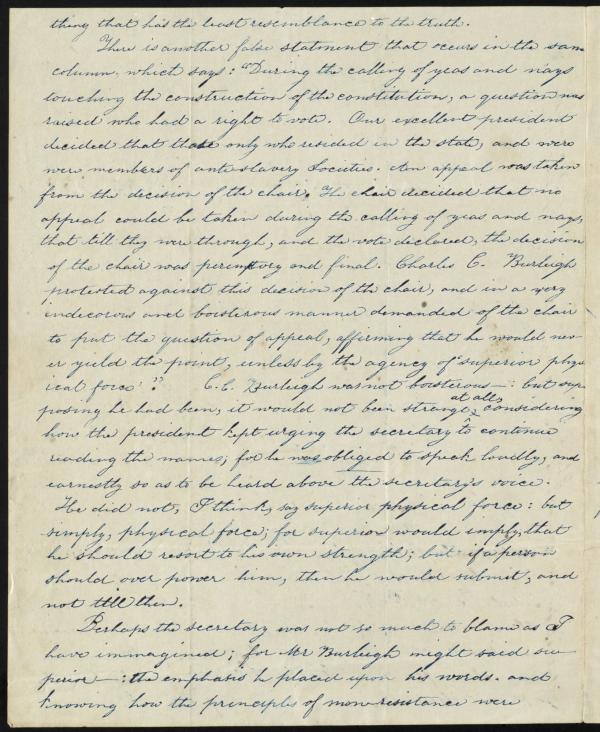 thing that has the least resemblance to the truth.
There is another false statement that occurs in the same
column, which says: "During the calling of yeas and nays
touching the construction of the constitution, a question was
raised who had a right to vote. Our excellent president
decided that those only who resided in the state, and were
were members of antislavery Societies. An appeal was taken
from the decision of the chair. The chair decided that no
appeal could be taken during the calling of yeas and nays,
that till they were through, and the vote declared, the decision
of the chair was peremptory and final. Charles C. Burleigh
protested against this decision of the chair, and in a very
indecorous and boisterous manner demanded of the chair
to put the question of appeal, affirming that he would nev-
er yield the point, unless by the agency of "superior phys-
ical force'?" C.C. Burleigh was not boisterous—: but sup-
posing he had been, it would not been strange at all, considering
how the president kept urging the secretary to continue
reading the names; for he was obliged to speak loudly, and
earnestly so as to be heard above the secretary's voice.
He did not, I think, say superior physical force: but
simply, physical force; for superior would imply, that
he should resort to his own strength; but if a person
should over power him, then he would submit, and
not till then.
Perhaps the secretary was not so much to blame as I
have immagined; for Mr Burleigh might said su-
perior—: the emphasis he placed upon his words. and
knowing how the principles of non-resistance were